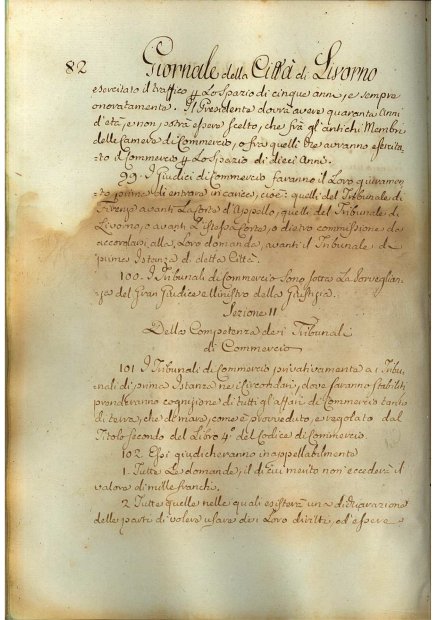 82 Giornale della Città di Livorno
esercitato il traffico p. Lo spazio di cinque anni, e sempre
onoratamente. Il Presidente dovrà avere quaranta Anni
d'età, e non potrà essere scelto, che frà gl'antichi Membri
delle Camere di Commercio, o frà quelli che avranno esercita-
to il Commercio p. Lo spazio di dieci Anni.
99. I Giudici di Commercio faranno il Loro giuramen-
to prima di entrare in carica, cioè i quelli del Tribunale di
Firenze avanti La Corte d'Appello, quelli del Tribunale di
Livorno, o avanti L'istessa Corte, o dietro commissione da
accordarsi alla Loro domanda, avanti il Tribunale di
prima Istanza di detta Città.
100. I Tribunali di Commercio sono sotto La sorveglian-
za del Gran Giudice e Ministro della Giustizia.
Sezione II
Della Competenza dei Tribunali
di Commercio
101. I Tribunali di Commercio privativamente ai Tribu-
nali di prima Istanza nei Circondari, dove saranno stabiliti
prenderanno cognizione di tutti gl'affari di Commercio tanto
di terra, che di mare, come è provveduto, e regolato dal
Titolo secondo del Libro 4° del Codice di Commercio
102. Essi giudicheranno inappellabilmente
1. Tutte Le domande, il di cui merito non eccederà il
valore di mille franchi.
2. Tutte quelle nelle quali esisterà una dichiarazione
delle parti di volere usare dei Loro diritti, ed essere